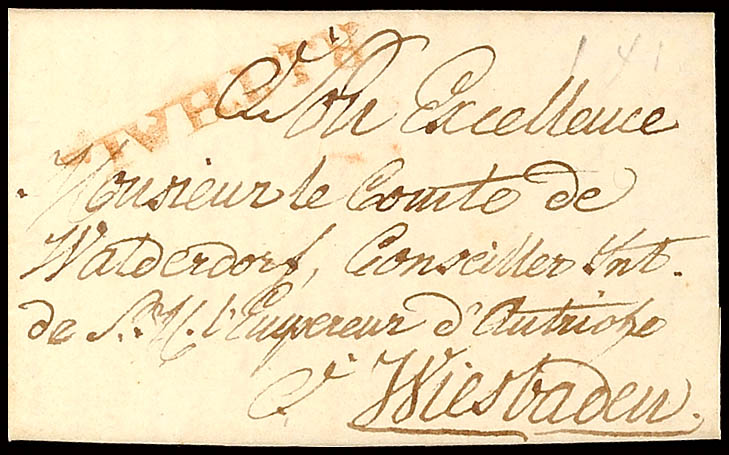 à Son Excellence
Monsieur le Comte de
Walderdorf, Conseiller Int.
de S. M. l'Empereur d'Autriche
à Wiesbaden.